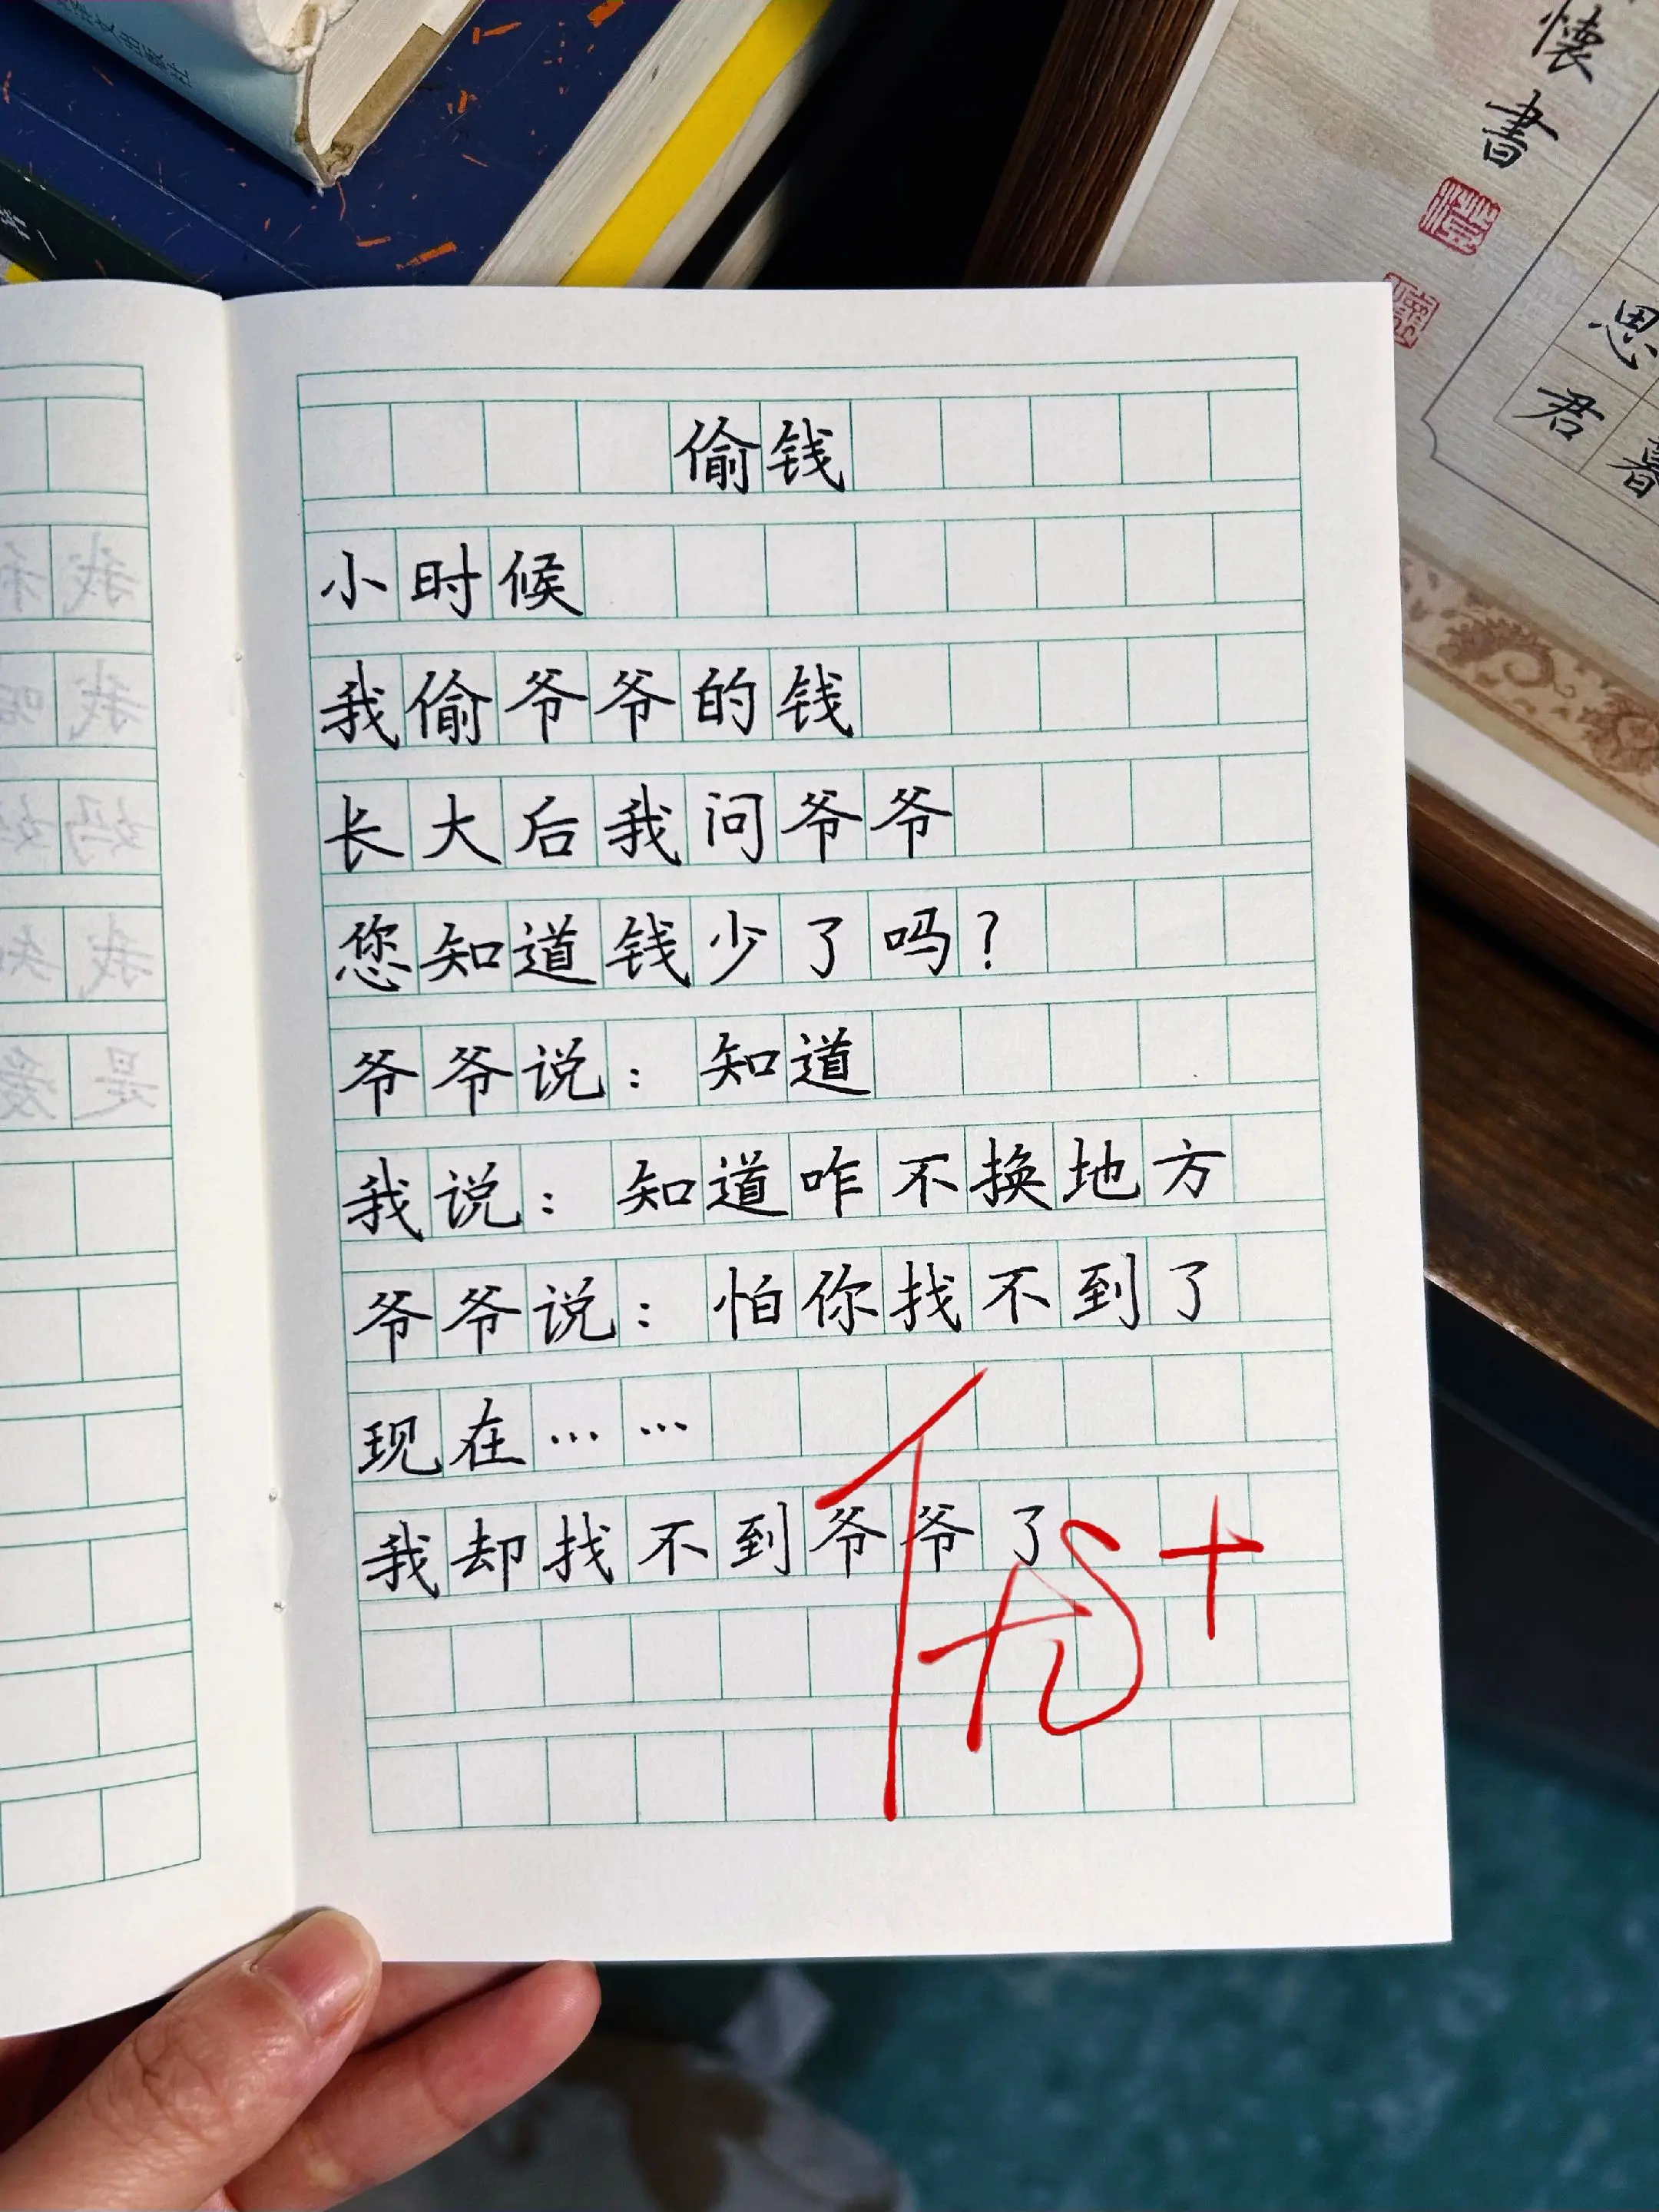 偷钱
小时候
我偷爷爷的钱
长大后我问爷爷
您知道钱少了吗？
爷爷说：知道
我说：知道咋不换地方
爷爷说：怕你找不到了
现在……
我却找不到爷爷了
懐書
思
君
暮